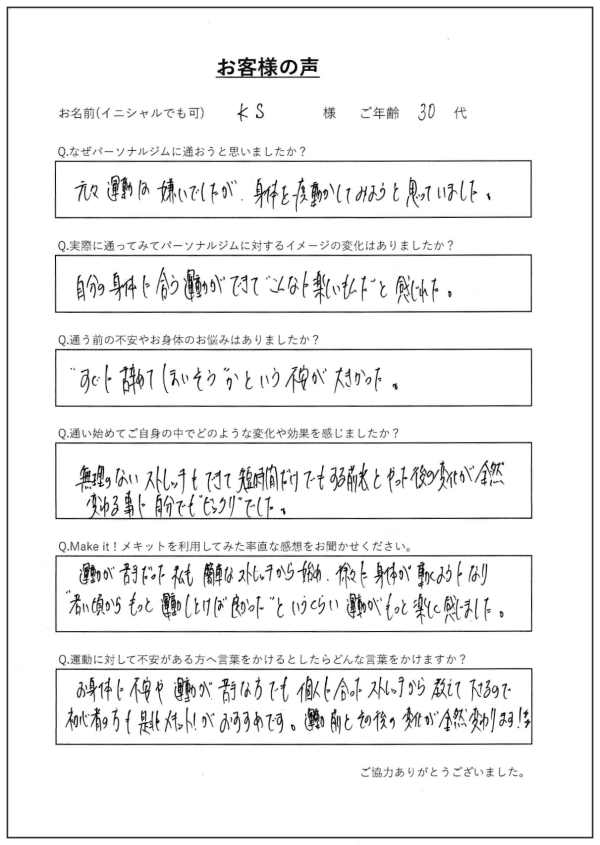 お客様の声
お名前(イニシャルでも可) KS 様 ご年齢 30 代
Q.なぜパーソナルジムに通おうと思いましたか？
元々運動は嫌いでしたが、身体を一度動かしてみようと思っていました。
Q.実際に通ってみてパーソナルジムに対するイメージの変化はありましたか？
自分の身体に合う運動ができて"こんなに楽しいもんだ"と感じれた。
Q.通う前の不安やお身体のお悩みはありましたか？
"すぐに辞めてしまいそう"かという不安が大きかった。
Q.通い始めてご自身の中でどのような変化や効果を感じましたか？
無理のないストレッチもできて短時間だけでもする前とやった後の変化が全然
変わる事に自分でも"ビックリ"でした。
Q.Make it！メキットを利用してみた率直な感想をお聞かせください。
運動が苦手だった私も簡単なストレッチから始め、徐々に身体が動くようになり
"若い頃からもっと運動しとけば良かった"というくらい運動がもっと楽しく感じました。
Q.運動に対して不安がある方へ言葉をかけるとしたらどんな言葉をかけますか？
お身体に不安や運動が苦手な方でも個人に合ったストレッチから教えて下さるので
初心者の方も是非メキット！がおすすめです。運動前とその後の変化が全然変わります！
ご協力ありがとうございました。